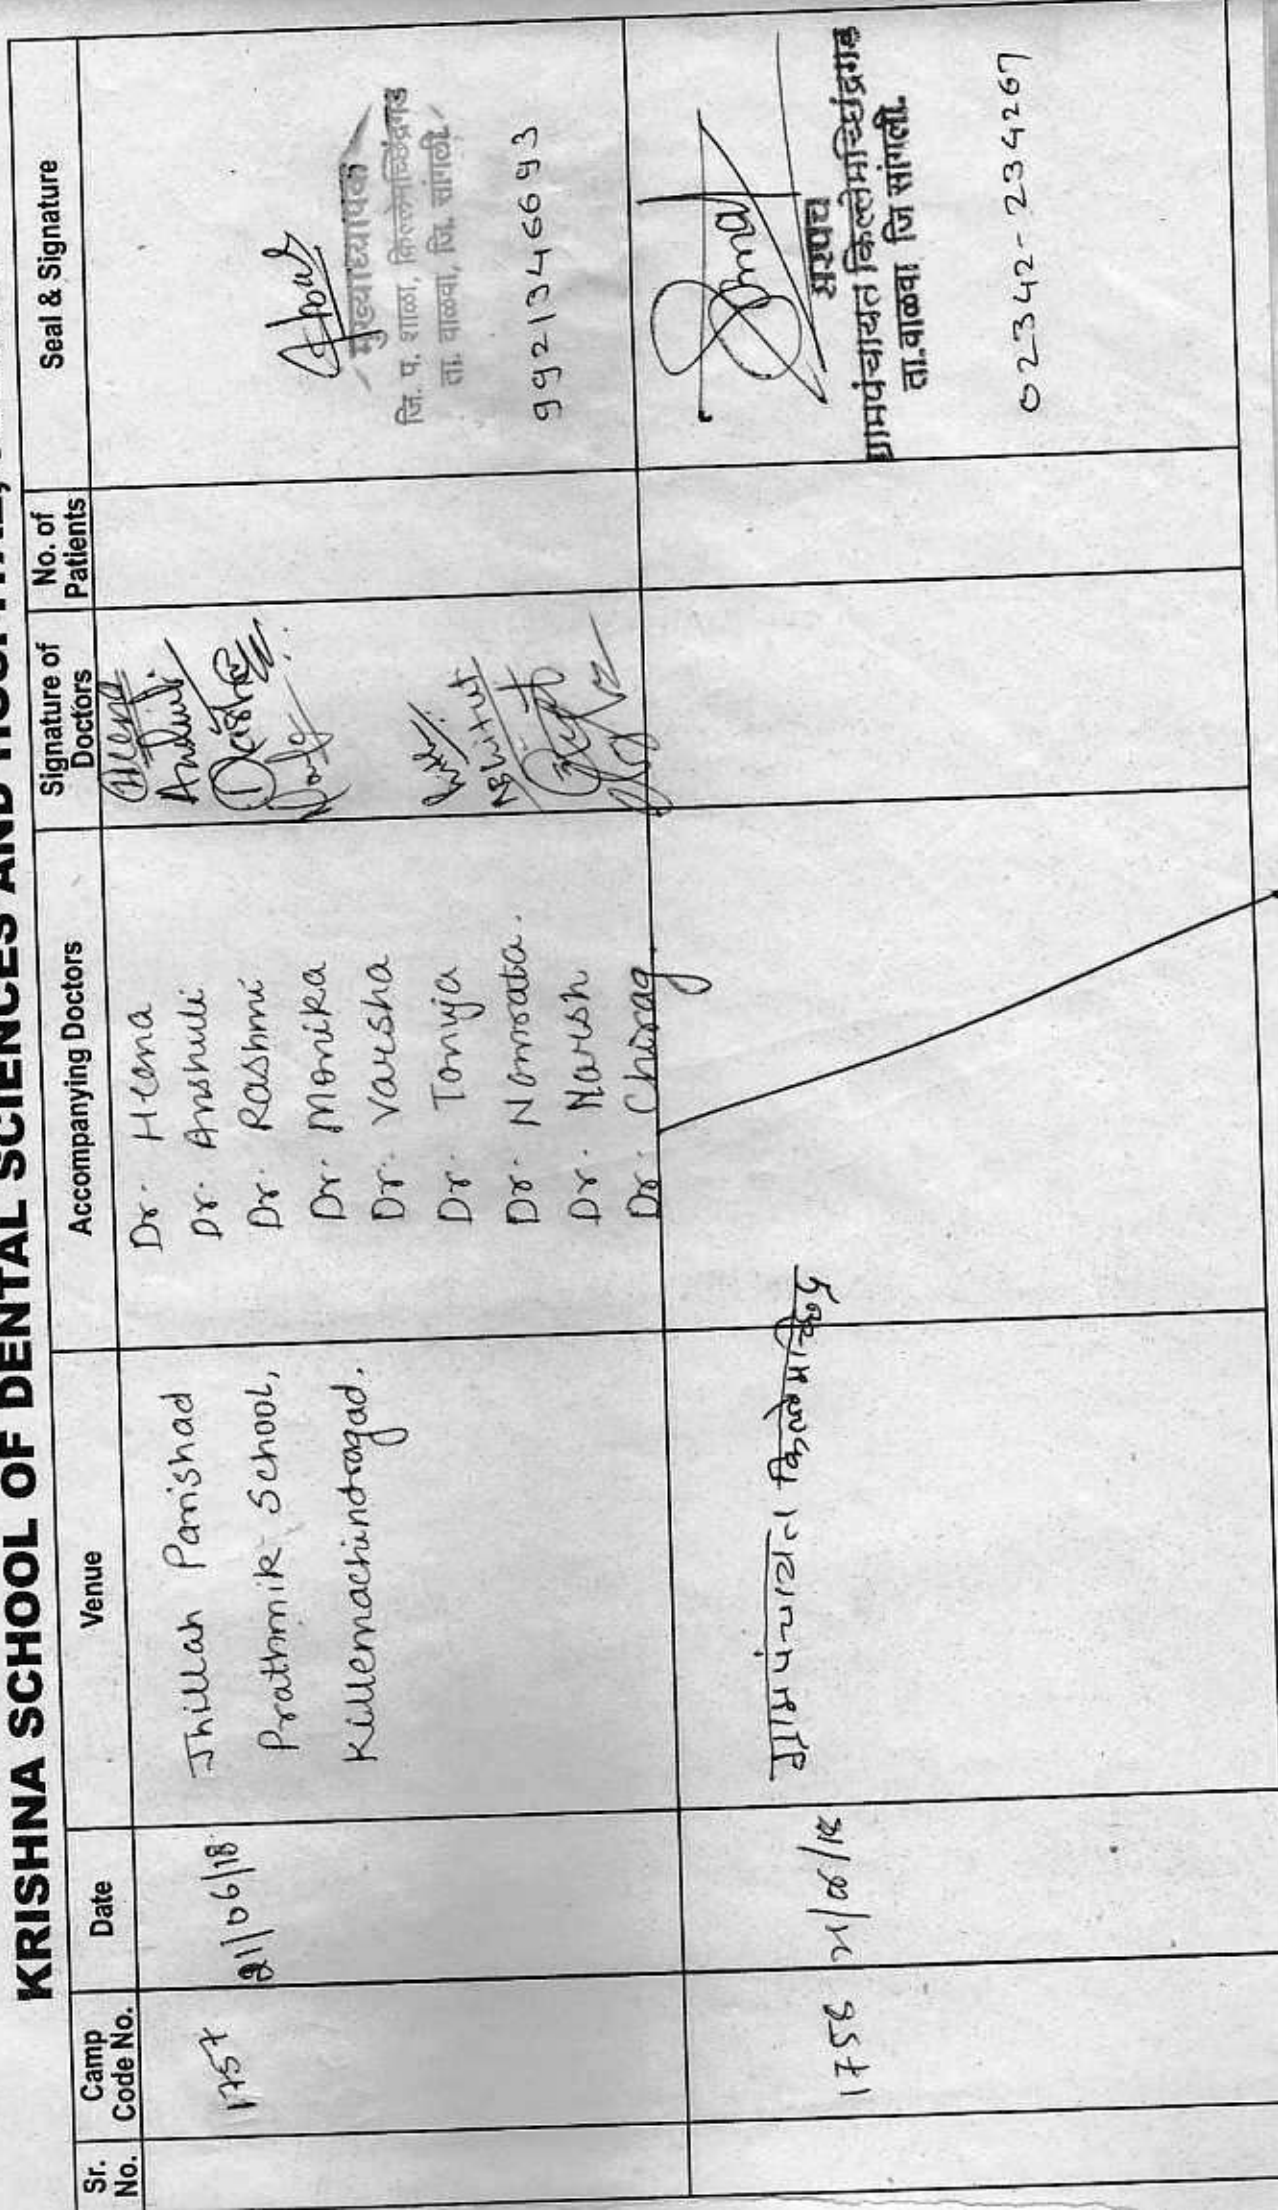 KRISHNA SCHOOL OF DENTAL SCIENCES AND HOSPITAL,
Sr. No.
Camp Code No.
Date
Venue
Accompanying Doctors
Signature of Doctors
No. of Patients
Seal & Signature
1757
21/06/18
Jhillah Parishad
Prathmik School,
Killemachindragad.
Dr. Heena
Dr. Anshuli
Dr. Rashmi
Dr. Monika
Dr. Varsha
Dr. Tanuja
Dr. Namrata.
Dr. Harish
Dr. Chirag
Heena
Anshuli
मुख्याध्यापक
जि. प. शाळा, किल्लेमच्छिंद्रगड
ता. वाळवा, जि. सांगली
9921346693
1758
21/06/18
ग्रामपंचायत किल्लेमच्छिंद्र
सरपंच
ग्रामपंचायत किल्लेमच्छिंद्रगड
ता.वाळवा जि सांगली.
02342-234267